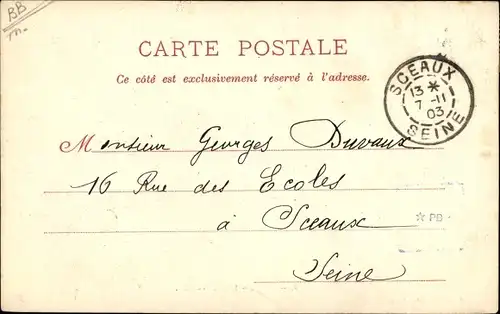 BB
CARTE POSTALE
Ce côté est exclusivement réservé à l'adresse.
SCEAUX
13 *
7 -11
03
SEINE
Monsieur Georges Duvaux
16 Rue des Ecoles
à Sceaux
* PB
Seine